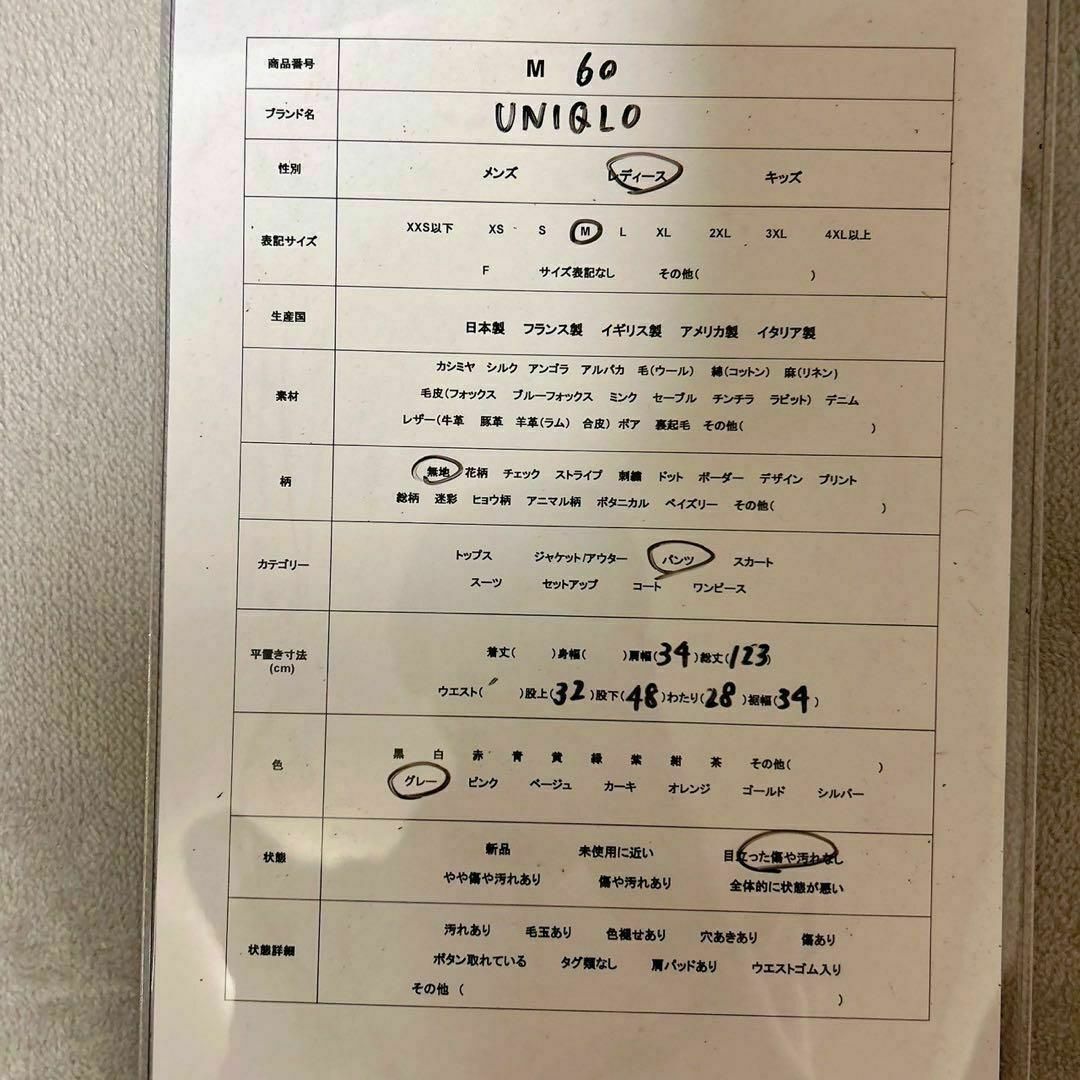 商品番号 M 60
ブランド名 UNIQLO
性別 メンズ レディース キッズ
表記サイズ XXS以下 XS S M L XL 2XL 3XL 4XL以上
F サイズ表記なし その他( )
生産国 日本製 フランス製 イギリス製 アメリカ製 イタリア製
素材 カシミヤ シルク アンゴラ アルパカ 毛(ウール) 綿(コットン) 麻(リネン)
毛皮(フォックス ブルーフォックス ミンク セーブル チンチラ ラビット) デニム
レザー(牛革 豚革 羊革(ラム) 合皮) ボア 裏起毛 その他( )
柄 無地 花柄 チェック ストライプ 刺繍 ドット ボーダー デザイン プリント
総柄 迷彩 ヒョウ柄 アニマル柄 ボタニカル ペイズリー その他( )
カテゴリー トップス ジャケット/アウター パンツ スカート
スーツ セットアップ コート ワンピース
平置き寸法 (cm) 着丈( )身幅( )肩幅(34)総丈(123)
ウエスト(〃 )股上(32)股下(48)わたり(28)裾幅(34)
色 黒 白 赤 青 黄 緑 紫 紺 茶 その他( )
グレー ピンク ベージュ カーキ オレンジ ゴールド シルバー
状態 新品 未使用に近い 目立った傷や汚れなし
やや傷や汚れあり 傷や汚れあり 全体的に状態が悪い
状態詳細 汚れあり 毛玉あり 色褪せあり 穴あきあり 傷あり
ボタン取れている タグ類なし 肩パッドあり ウエストゴム入り
その他 ( )